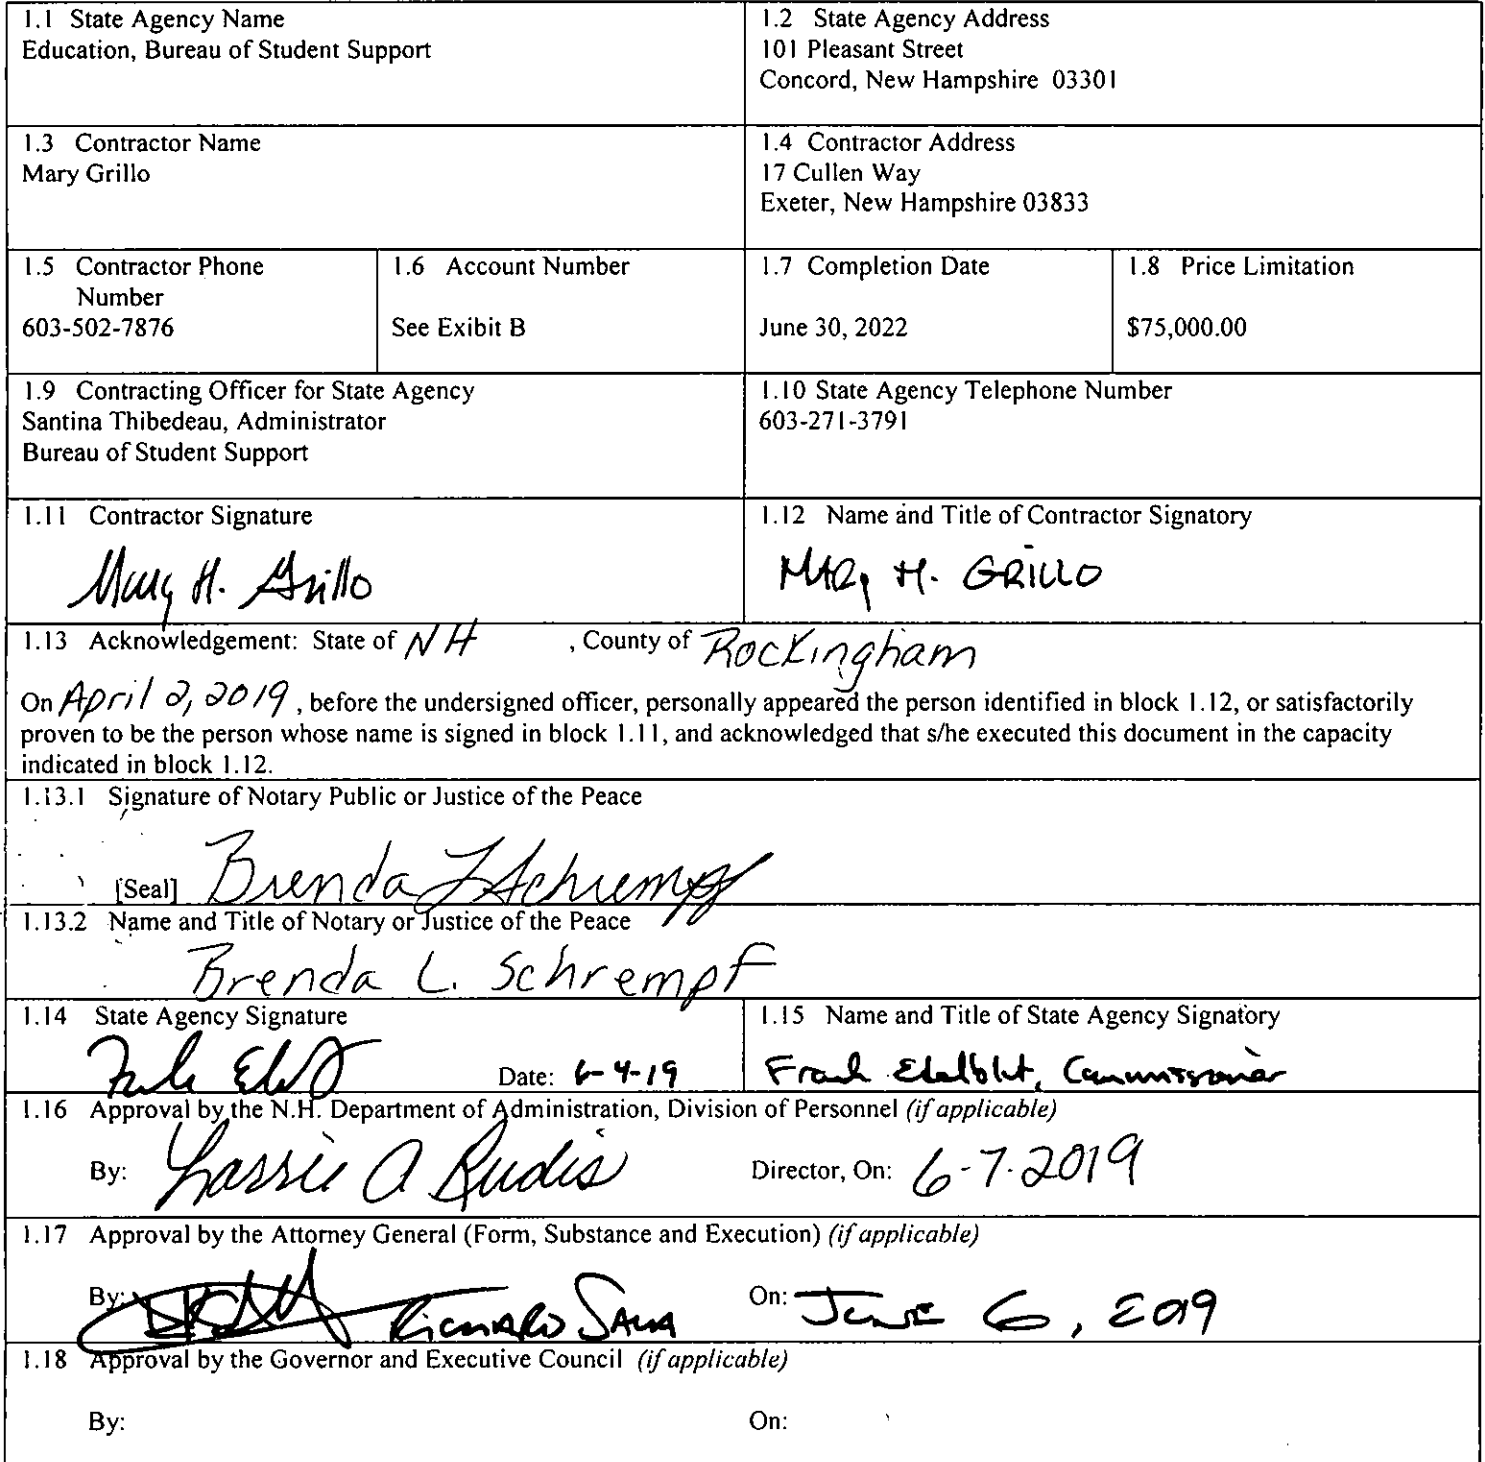 1.1 State Agency Name
Education, Bureau of Student Support
1.2 State Agency Address
101 Pleasant Street
Concord, New Hampshire 03301
1.3 Contractor Name
Mary Grillo
1.4 Contractor Address
17 Cullen Way
Exeter, New Hampshire 03833
1.5 Contractor Phone
Number
603-502-7876
1.6 Account Number
See Exibit B
1.7 Completion Date
June 30, 2022
1.8 Price Limitation
$75,000.00
1.9 Contracting Officer for State Agency
Santina Thibedeau, Administrator
Bureau of Student Support
1.10 State Agency Telephone Number
603-271-3791
1.11 Contractor Signature
Mary H. Grillo
1.12 Name and Title of Contractor Signatory
MARy H. GRILLO
1.13 Acknowledgement: State of NH , County of Rockingham
On April 2, 2019, before the undersigned officer, personally appeared the person identified in block 1.12, or satisfactorily
proven to be the person whose name is signed in block 1.11, and acknowledged that s/he executed this document in the capacity
indicated in block 1.12.
1.13.1 Signature of Notary Public or Justice of the Peace
[Seal] Brenda L Schrempf
1.13.2 Name and Title of Notary or Justice of the Peace
Brenda L. Schrempf
1.14 State Agency Signature
Date: 6-4-19
1.15 Name and Title of State Agency Signatory
Frank Edelblut, Commissioner
1.16 Approval by the N.H. Department of Administration, Division of Personnel (if applicable)
By: Lassie A Rudis Director, On: 6-7-2019
1.17 Approval by the Attorney General (Form, Substance and Execution) (if applicable)
By: RICHARD SALA On: JUNE 6, 2019
1.18 Approval by the Governor and Executive Council (if applicable)
By: On: